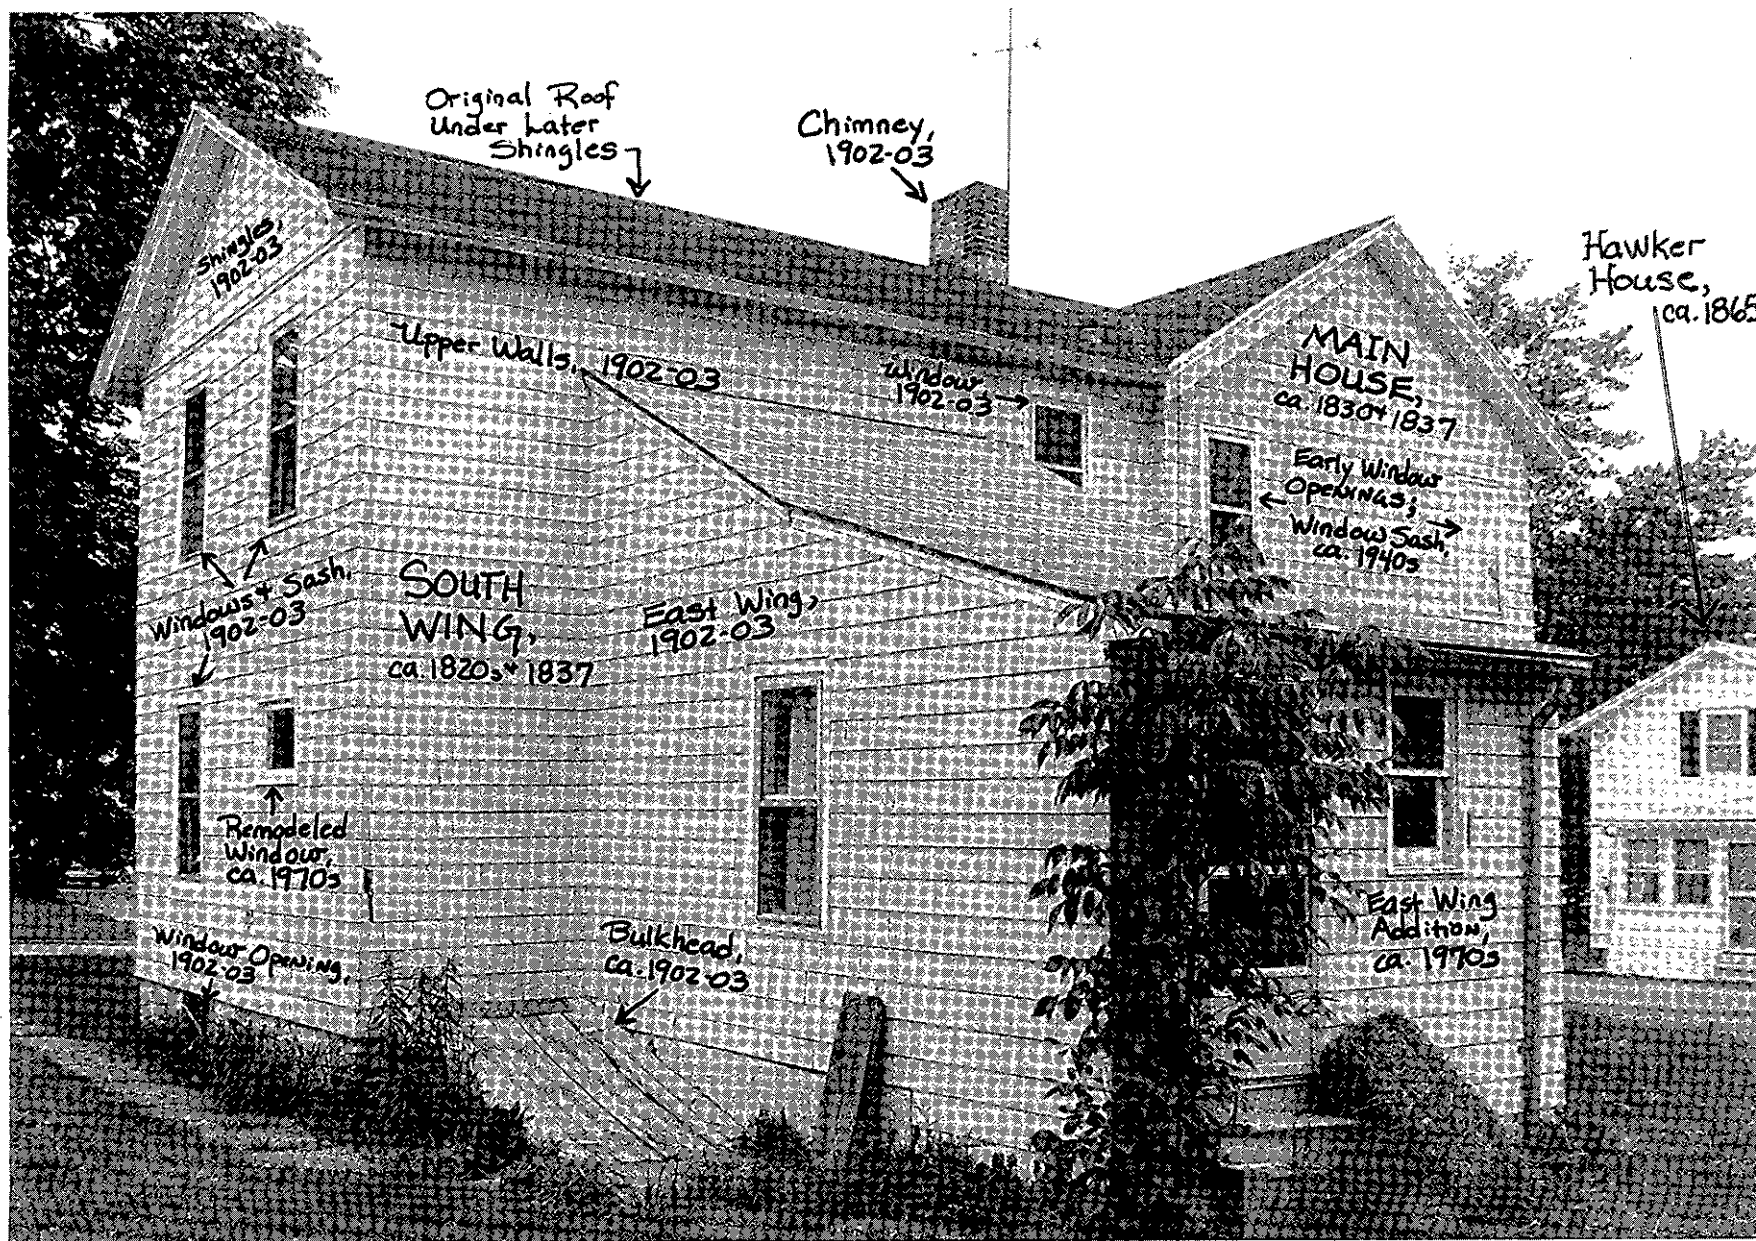 Original Roof
Under Later
Shingles
Chimney,
1902-03
Hawker
House,
ca. 1865
Shingles,
1902-03
Upper Walls, 1902-03
Window
1902-03
MAIN
HOUSE,
ca. 1830 + 1837
Early Window
Openings;
Window Sash,
ca. 1940s
Windows + Sash,
1902-03
SOUTH
WING,
ca. 1820s + 1837
East Wing,
1902-03
Remodeled
Window,
ca. 1970s
Window Opening,
1902-03
Bulkhead,
ca. 1902-03
East Wing
Addition,
ca. 1970s